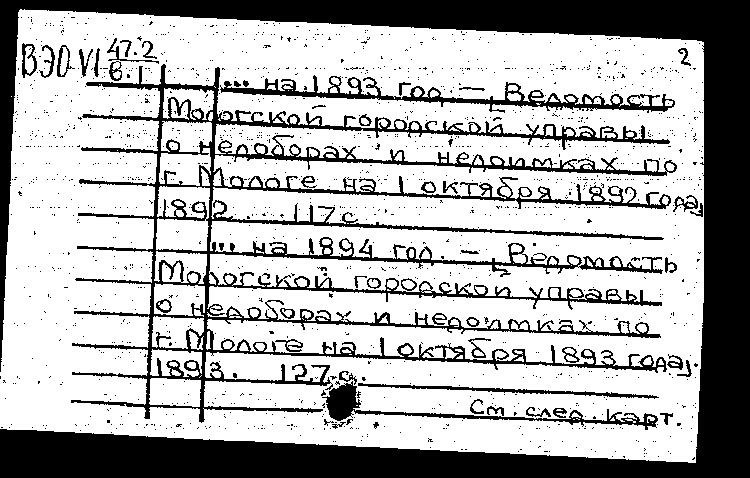 2
ВЭО VI 47.2
В.1
... на 1893 год. — [Ведомость
Мологской городской управы
о недоборах и недоимках по
г. Мологе на 1 октября 1892 года]
1892. 117 с.
... на 1894 год. — [Ведомость
Мологской городской управы
о недоборах и недоимках по
г. Мологе на 1 октября 1893 года].
1893. 127 с.
См. след. карт.